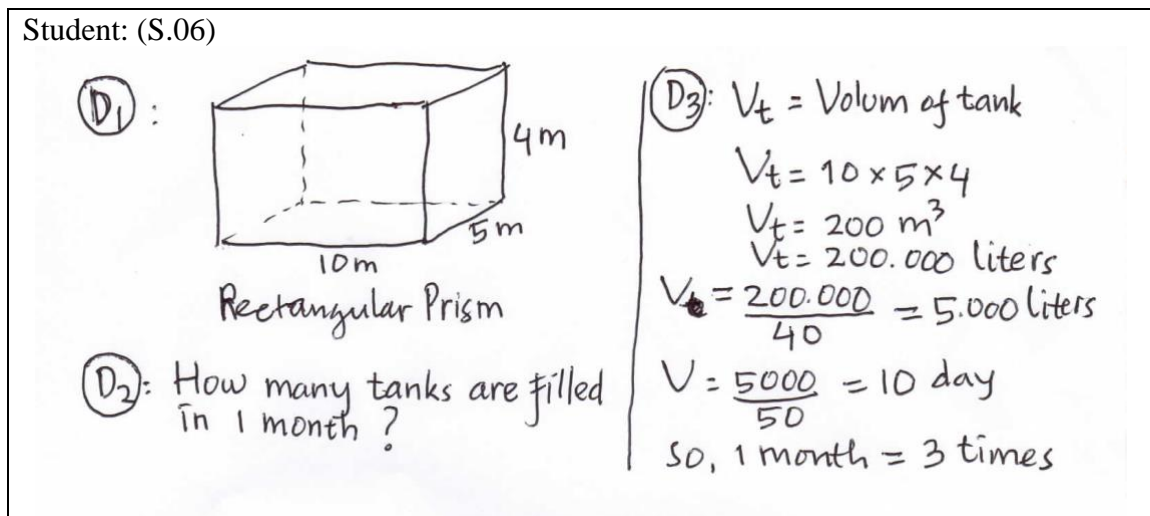 Student: (S.06)
D1 :
4m
5m
10m
Rectangular Prism
D2): How many tanks are filled
in 1 month ?
D3): Vt = Volum of tank
Vt = 10 × 5 × 4
Vt = 200 m³
Vt = 200.000 liters
V = 200.000 / 40 = 5.000 liters
V = 5000 / 50 = 10 day
so, 1 month = 3 times